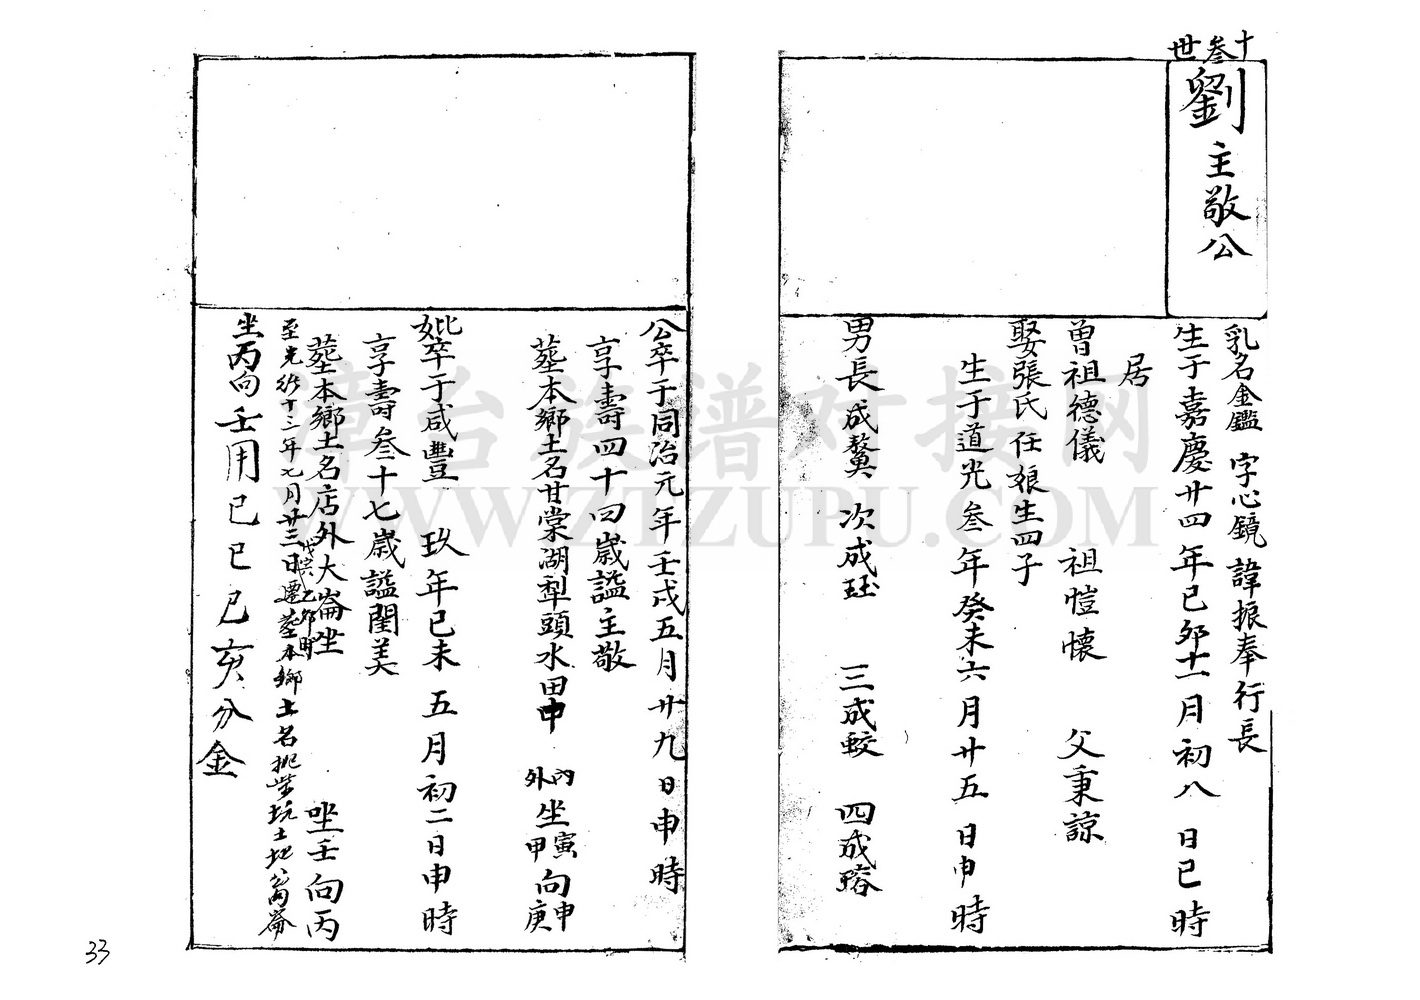 十叁世
劉主敬公
乳名金鑑 字心鏡 諱振奉行長
生于嘉慶廿四年已夘十一月初八日已時
居
曾祖德儀 祖愷懷 父秉諒
娶張氏任娘生四子
生于道光叁年癸未六月廿五日申時
男長成鰲 次成珏 三成蛟 四成
公卒于同治元年壬戌五月廿九日申時
享壽四十四歲謚主敬
塟本鄉土名甘棠湖犁頭水田中 內外坐寅甲向申庚
妣卒于咸豐玖年已未五月初二日申時
享壽叁十七歲謚閨美
塟本鄉土名店外大崙坐 坐壬向丙
至光緒十三年七月廿三日遷塟本鄉土名坑土地崙
坐丙向壬用已已已亥分金
33
漳台族谱对接网
WWW.ZTZUPU.COM